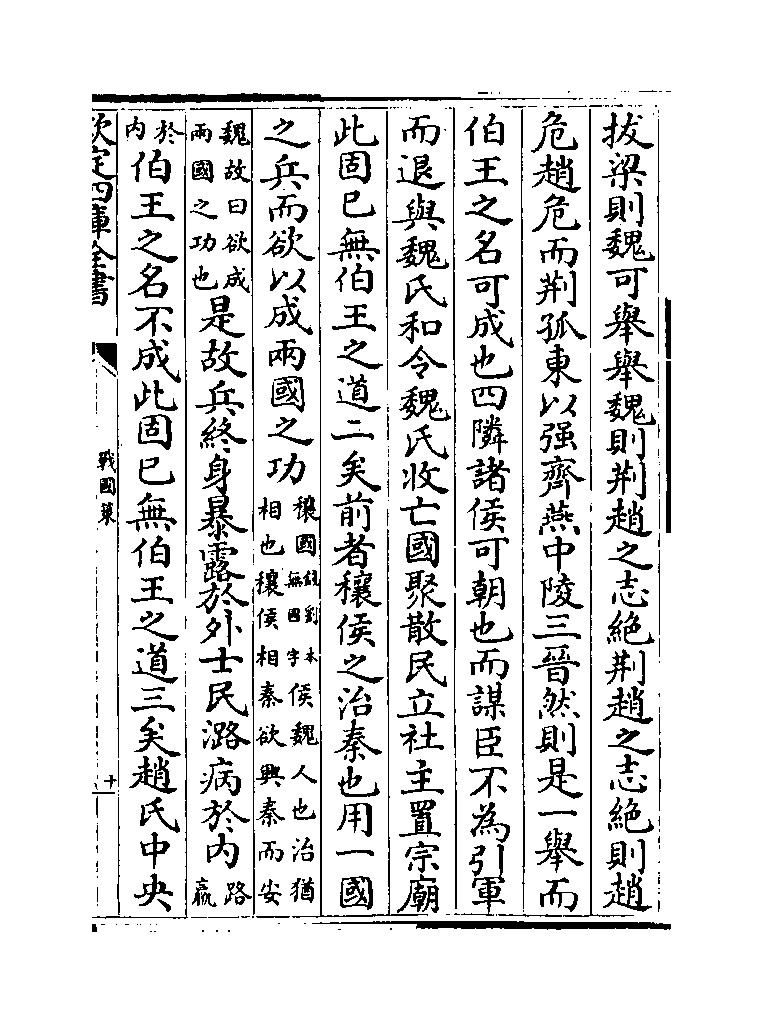 拔梁則魏可舉舉魏則荆趙之志絶荆趙之志絶則趙
危趙危而荆孤東以强齊燕中陵三晉然則是一舉而
伯王之名可成也四隣諸侯可朝也而謀臣不為引軍
而退與魏氏和令魏氏收亡國聚散民立社主置宗廟
此固已無伯王之道二矣前者穰侯之治秦也用一國
之兵而欲以成兩國之功穰國錢劉本無國字侯魏人也治猶相也穰侯相秦欲興秦而安
魏故曰欲成兩國之功也是故兵終身暴露於外士民潞病於内路羸
於内伯王之名不成此固已無伯王之道三矣趙氏中央
欽定四庫全書
戰國策
十